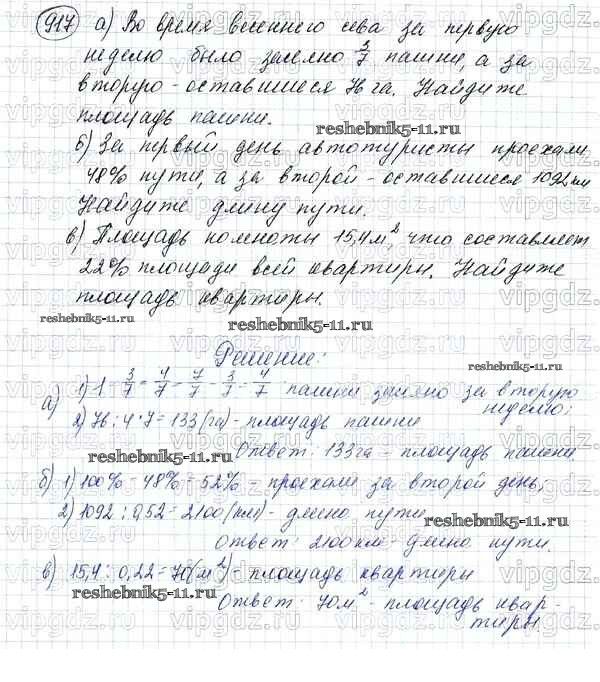 917 а) Во время весеннего сева за первую
неделю было засеяно 3/7 пашни, а за
вторую - оставшиеся 76 га. Найдите
площадь пашни.
reshebnik5-11.ru
б) За первый день автотуристы проехали
48% пути, а за второй - оставшиеся 1092 км
Найдите длину пути.
в) Площадь комнаты 15,4 м², что составляет
22% площади всей квартиры. Найдите
площадь квартиры.
reshebnik5-11.ru
reshebnik5-11.ru
Решение:
reshebnik5-11.ru
а) 1) 1 - 3/7 = 4/7 = 7/7 - 3/7 = 4/7 пашни засеяно за вторую
неделю;
2) 76 : 4 · 7 = 133 (га) - площадь пашни
Ответ: 133 га - площадь пашни
reshebnik5-11.ru
reshebnik5-11.ru
б) 1) 100% - 48% = 52% - проехали за второй день;
2) 1092 : 0,52 = 2100 (км) - длина пути
reshebnik5-11.ru
Ответ: 2100 км - длина пути.
в) 15,4 : 0,22 = 70 (м²) - площадь квартиры
reshebnik5-11.ru
Ответ: 70 м² - площадь квар-
тиры.
reshebnik5-11.ru